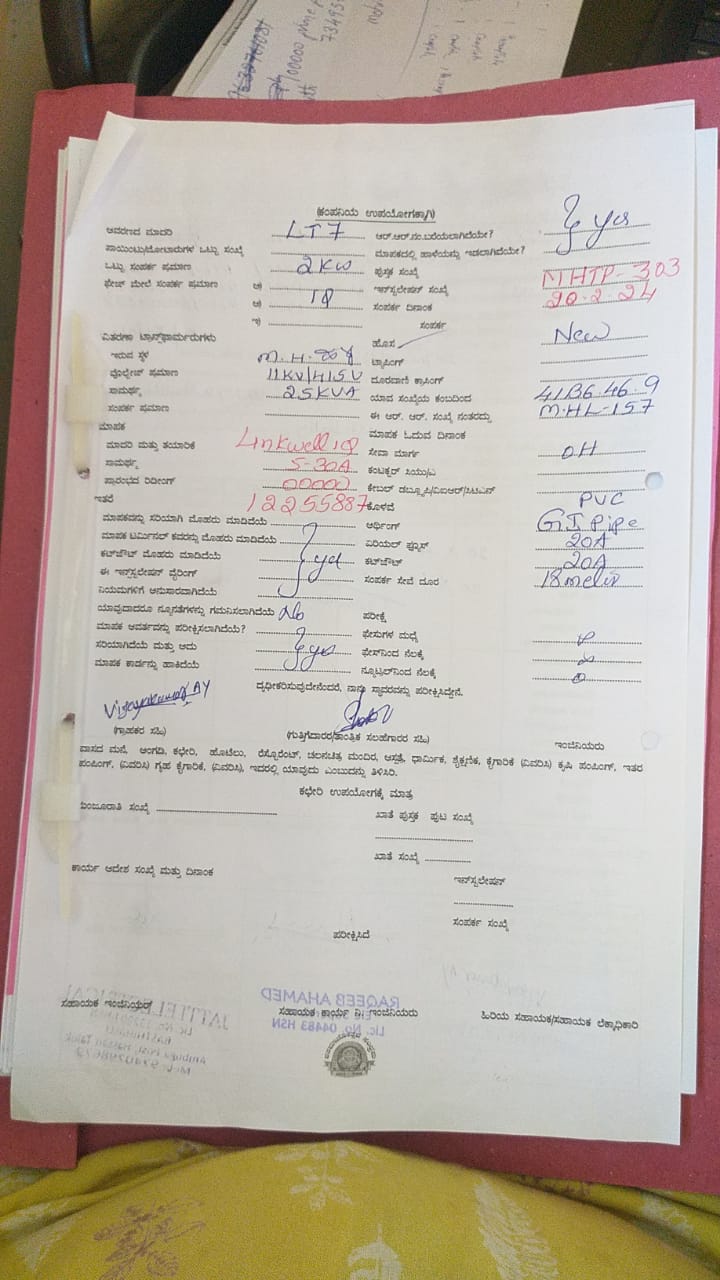 (ಕಂಪನಿಯ ಉಪಯೋಗಕ್ಕಾಗಿ)
ಆವರಣದ ಮಾದರಿ LT7 ಆರ್.ಆರ್.ನಂ.ಬರೆಯಲಾಗಿದೆಯೇ? yes
ಪಾಯಿಂಟು/ಮೋಟಾರುಗಳ ಒಟ್ಟು ಸಂಖ್ಯೆ ಮಾಪಕದಲ್ಲಿ ಹಾಳೆಯನ್ನು ಇಡಲಾಗಿದೆಯೇ?
ಒಟ್ಟು ಸಂಪರ್ಕ ಪ್ರಮಾಣ 2KW ಪುಸ್ತಕ ಸಂಖ್ಯೆ
ಫೇಜ್ ಮೇಲೆ ಸಂಪರ್ಕ ಪ್ರಮಾಣ ಇನ್‌ಸ್ಟಲೇಷನ್ ಸಂಖ್ಯೆ MHTP-303
ಸಂಪರ್ಕ ದಿನಾಂಕ 20.2.24
ಸಂಪರ್ಕ
ವಿತರಣಾ ಟ್ರಾನ್ಸ್‌ಫಾರ್ಮರುಗಳು ಹೊಸ New
ಇರುವ ಸ್ಥಳ ಟ್ಯಾಪಿಂಗ್
ವೋಲ್ಟೇಜ್ ಪ್ರಮಾಣ 11KV/415V ದೂರವಾಣಿ ಕ್ರಾಸಿಂಗ್
ಸಾಮರ್ಥ್ಯ 25KVA ಯಾವ ಸಂಖ್ಯೆಯ ಕಂಬದಿಂದ 41B6.46.9
ಸಂಪರ್ಕ ಪ್ರಮಾಣ ಈ ಆರ್. ಆರ್. ಸಂಖ್ಯೆ ನಂತರದ್ದು M.HL-157
ಮಾಪಕ ಮಾಪಕ ಓದುವ ದಿನಾಂಕ
ಮಾದರಿ ಮತ್ತು ತಯಾರಿಕೆ Linkwell ಸೇವಾ ಮಾರ್ಗ OH
ಸಾಮರ್ಥ್ಯ 5-30A ಕಂಡಕ್ಟರ್
ಪ್ರಾರಂಭದ ರಿಡಿಂಗ್ 00000 ಕೇಬಲ್
ಇತರೆ 12255887 ಕೊಳವೆ PVC
ಮಾಪಕವನ್ನು ಸರಿಯಾಗಿ ಮೊಹರು ಮಾಡಿದೆಯೆ ಅರ್ಥಿಂಗ್ GI Pipe
ಮಾಪಕ ಟರ್ಮಿನಲ್ ಕವರನ್ನು ಮೊಹರು ಮಾಡಿದೆಯೆ ಏರಿಯಲ್ ಫ್ಯೂಸ್ 20A
ಕಟ್‌ಔಟ್ ಮೊಹರು ಮಾಡಿದೆಯೆ ಕಟ್‌ಔಟ್ 20A
ಈ ಇನ್‌ಸ್ಟಲೇಷನ್ ವೈರಿಂಗ್ ಸಂಪರ್ಕ ಸೇವೆ ದೂರ 18
ನಿಯಮಗಳಿಗೆ ಅನುಸಾರವಾಗಿದೆಯೆ
ಯಾವುದಾದರೂ ನ್ಯೂನತೆಗಳನ್ನು ಗಮನಿಸಲಾಗಿದೆಯೆ No ಪರೀಕ್ಷೆ
ಮಾಪಕ ಆವರ್ತವನ್ನು ಪರೀಕ್ಷಿಸಲಾಗಿದೆಯೆ? ಫೇಸುಗಳ ಮಧ್ಯೆ
ಸರಿಯಾಗಿದೆಯೆ ಮತ್ತು ಅದು yes ಫೇಸ್‌ನಿಂದ ನೆಲಕ್ಕೆ
ಮಾಪಕ ಕಾರ್ಡನ್ನು ಹಾಕಿದೆಯೆ ನ್ಯೂಟ್ರಲ್‌ನಿಂದ ನೆಲಕ್ಕೆ
ದೃಢೀಕರಿಸುವುದೇನೆಂದರೆ, ನಾನು ಸ್ಥಾವರವನ್ನು ಪರೀಕ್ಷಿಸಿದ್ದೇನೆ.
(ಗ್ರಾಹಕರ ಸಹಿ) (ಗುತ್ತಿಗೆದಾರರ/ತಾಂತ್ರಿಕ ಸಲಹೆಗಾರರ ಸಹಿ) ಇಂಜಿನಿಯರು
ವಾಸದ ಮನೆ, ಅಂಗಡಿ, ಕಛೇರಿ, ಹೊಟೆಲು, ರೆಸ್ಟೊರೆಂಟ್, ಚಲನಚಿತ್ರ ಮಂದಿರ, ಆಸ್ಪತ್ರೆ, ಧಾರ್ಮಿಕ, ಶೈಕ್ಷಣಿಕ, ಕೈಗಾರಿಕೆ (ವಿವರಿಸಿ) ಕೃಷಿ ಪಂಪಿಂಗ್, ಇತರ
ಪಂಪಿಂಗ್, (ವಿವರಿಸಿ) ಗೃಹ ಕೈಗಾರಿಕೆ, (ವಿವರಿಸಿ), ಇದರಲ್ಲಿ ಯಾವುದು ಎಂಬುದನ್ನು ತಿಳಿಸಿರಿ.
ಕಛೇರಿ ಉಪಯೋಗಕ್ಕೆ ಮಾತ್ರ
ಮಂಜೂರಾತಿ ಸಂಖ್ಯೆ ಖಾತೆ ಪುಸ್ತಕ ಪುಟ ಸಂಖ್ಯೆ
ಖಾತೆ ಸಂಖ್ಯೆ
ಕಾರ್ಯ ಆದೇಶ ಸಂಖ್ಯೆ ಮತ್ತು ದಿನಾಂಕ ಇನ್‌ಸ್ಟಲೇಷನ್
ಸಂಪರ್ಕ ಸಂಖ್ಯೆ
ಪರೀಕ್ಷಿಸಿದೆ
ಸಹಾಯಕ ಇಂಜಿನಿಯರ್ ಸಹಾಯಕ ಕಾರ್ಯ ನಿ. ಇಂಜಿನಿಯರು ಹಿರಿಯ ಸಹಾಯಕ/ಸಹಾಯಕ ಲೆಕ್ಕಾಧಿಕಾರಿ
RAQEEB AHAMED
Lic. No. 04483 HSN